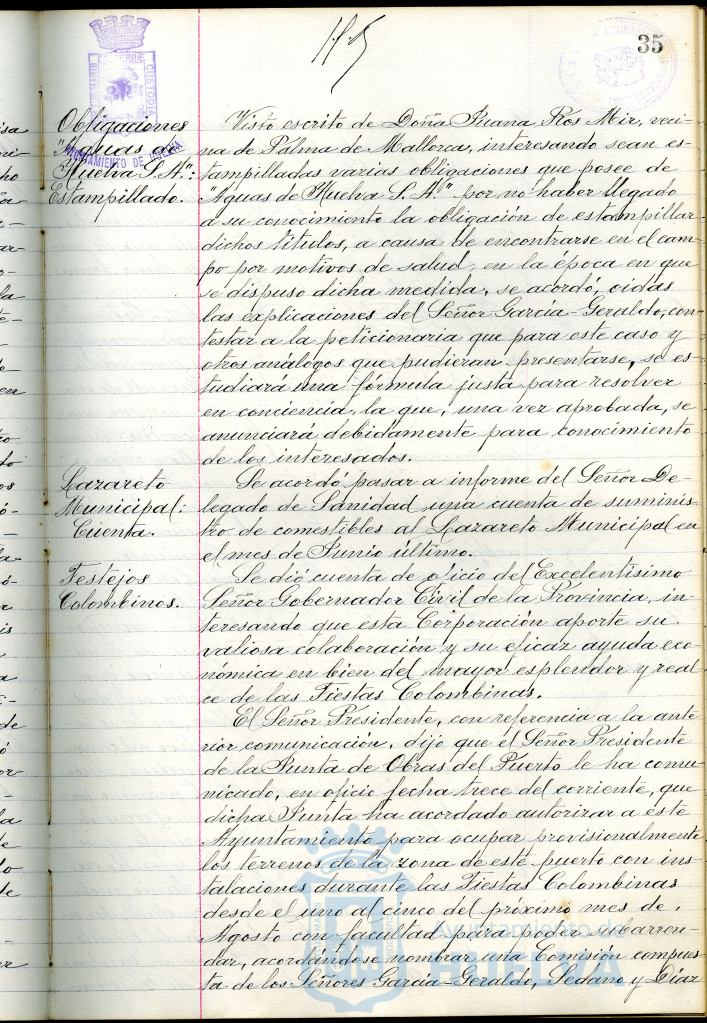 35
Obligaciones
"Aguas de
Huelva S.A.":
Estampillado.
AYUNTAMIENTO DE HUELVA
Visto escrito de Doña Juana Ros Mir, veci-
na de Palma de Mallorca, interesando sean es-
tampilladas varias obligaciones que posee de
"Aguas de Huelva S.A." por no haber llegado
a su conocimiento la obligación de estampillar
dichos títulos, a causa de encontrarse en el cam-
po por motivos de salud, en la época en que
se dispuso dicha medida, se acordó, oidas
las explicaciones del Señor García-Geraldo, con-
testar a la peticionaria que para este caso y
otros análogos que pudieran presentarse, se es-
tudiará una fórmula justa para resolver
en conciencia, la que, una vez aprobada, se
anunciará debidamente para conocimiento
de los interesados.
Lazareto
Municipal:
Cuenta.
Se acordó pasar a informe del Señor De-
legado de Sanidad una cuenta de suminis-
tro de comestibles al Lazareto Municipal en
el mes de Junio último.
Festejos
Colombinos.
Se dió cuenta de oficio del Excelentísimo
Señor Gobernador Civil de la Provincia, in-
teresando que esta Corporación aporte su
valiosa colaboración y su eficaz ayuda eco-
nómica en bien del mayor esplendor y real
ce de las Fiestas Colombinas.
El Señor Presidente, con referencia a la ante
rior comunicación, dijo que el Señor Presidente
de la Junta de Obras del Puerto le ha comu-
nicado, en oficio fecha trece del corriente, que
dicha Junta ha acordado autorizar a este
Ayuntamiento para ocupar provisionalmente
los terrenos de la zona de este puerto con ins-
talaciones durante las Fiestas Colombinas
desde el uno al cinco del próximo mes de
Agosto con facultad para poder subarren-
dar, acordándose nombrar una Comisión compues-
ta de los Señores García-Geraldo, Sedano y Díaz
Ayuntamiento de
HUELVA